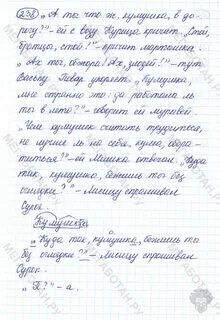 238 „А ты что ж, кумушка, в до-
рогу?"–ей с возу Курица кричит. „Стой,
братцы, стой!"– кричит мартышка.
„Ах ты, обжора! Ах, злодей!"– тут
Ваську Повар укоряет. „Кумушка,
мне странно это: да работала ль
ты в лето?"– говорит ей муравей.
„Чем кумушек считать трудиться,
не лучше ль на себя, кума, обра-
титься?"–ей Мишка отвечал. „Куда
так, кумушка, бежишь ты без
оглядки?"– Лисицу спрашивал
Сурок.
Кумушка
„Куда так, кумушка, бежишь ты
без оглядки?"– Лисицу спрашивал
Сурок.
„П?"– а.